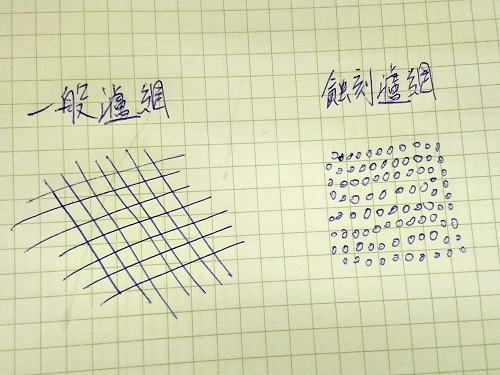 一般濾網
蝕刻濾網